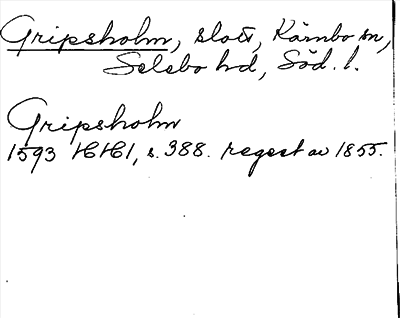 Gripsholm, slott, Kärnbo sn,
Selebo hd, Söd. l.
Gripsholm
1593 HH1, s. 388. regest av 1855.